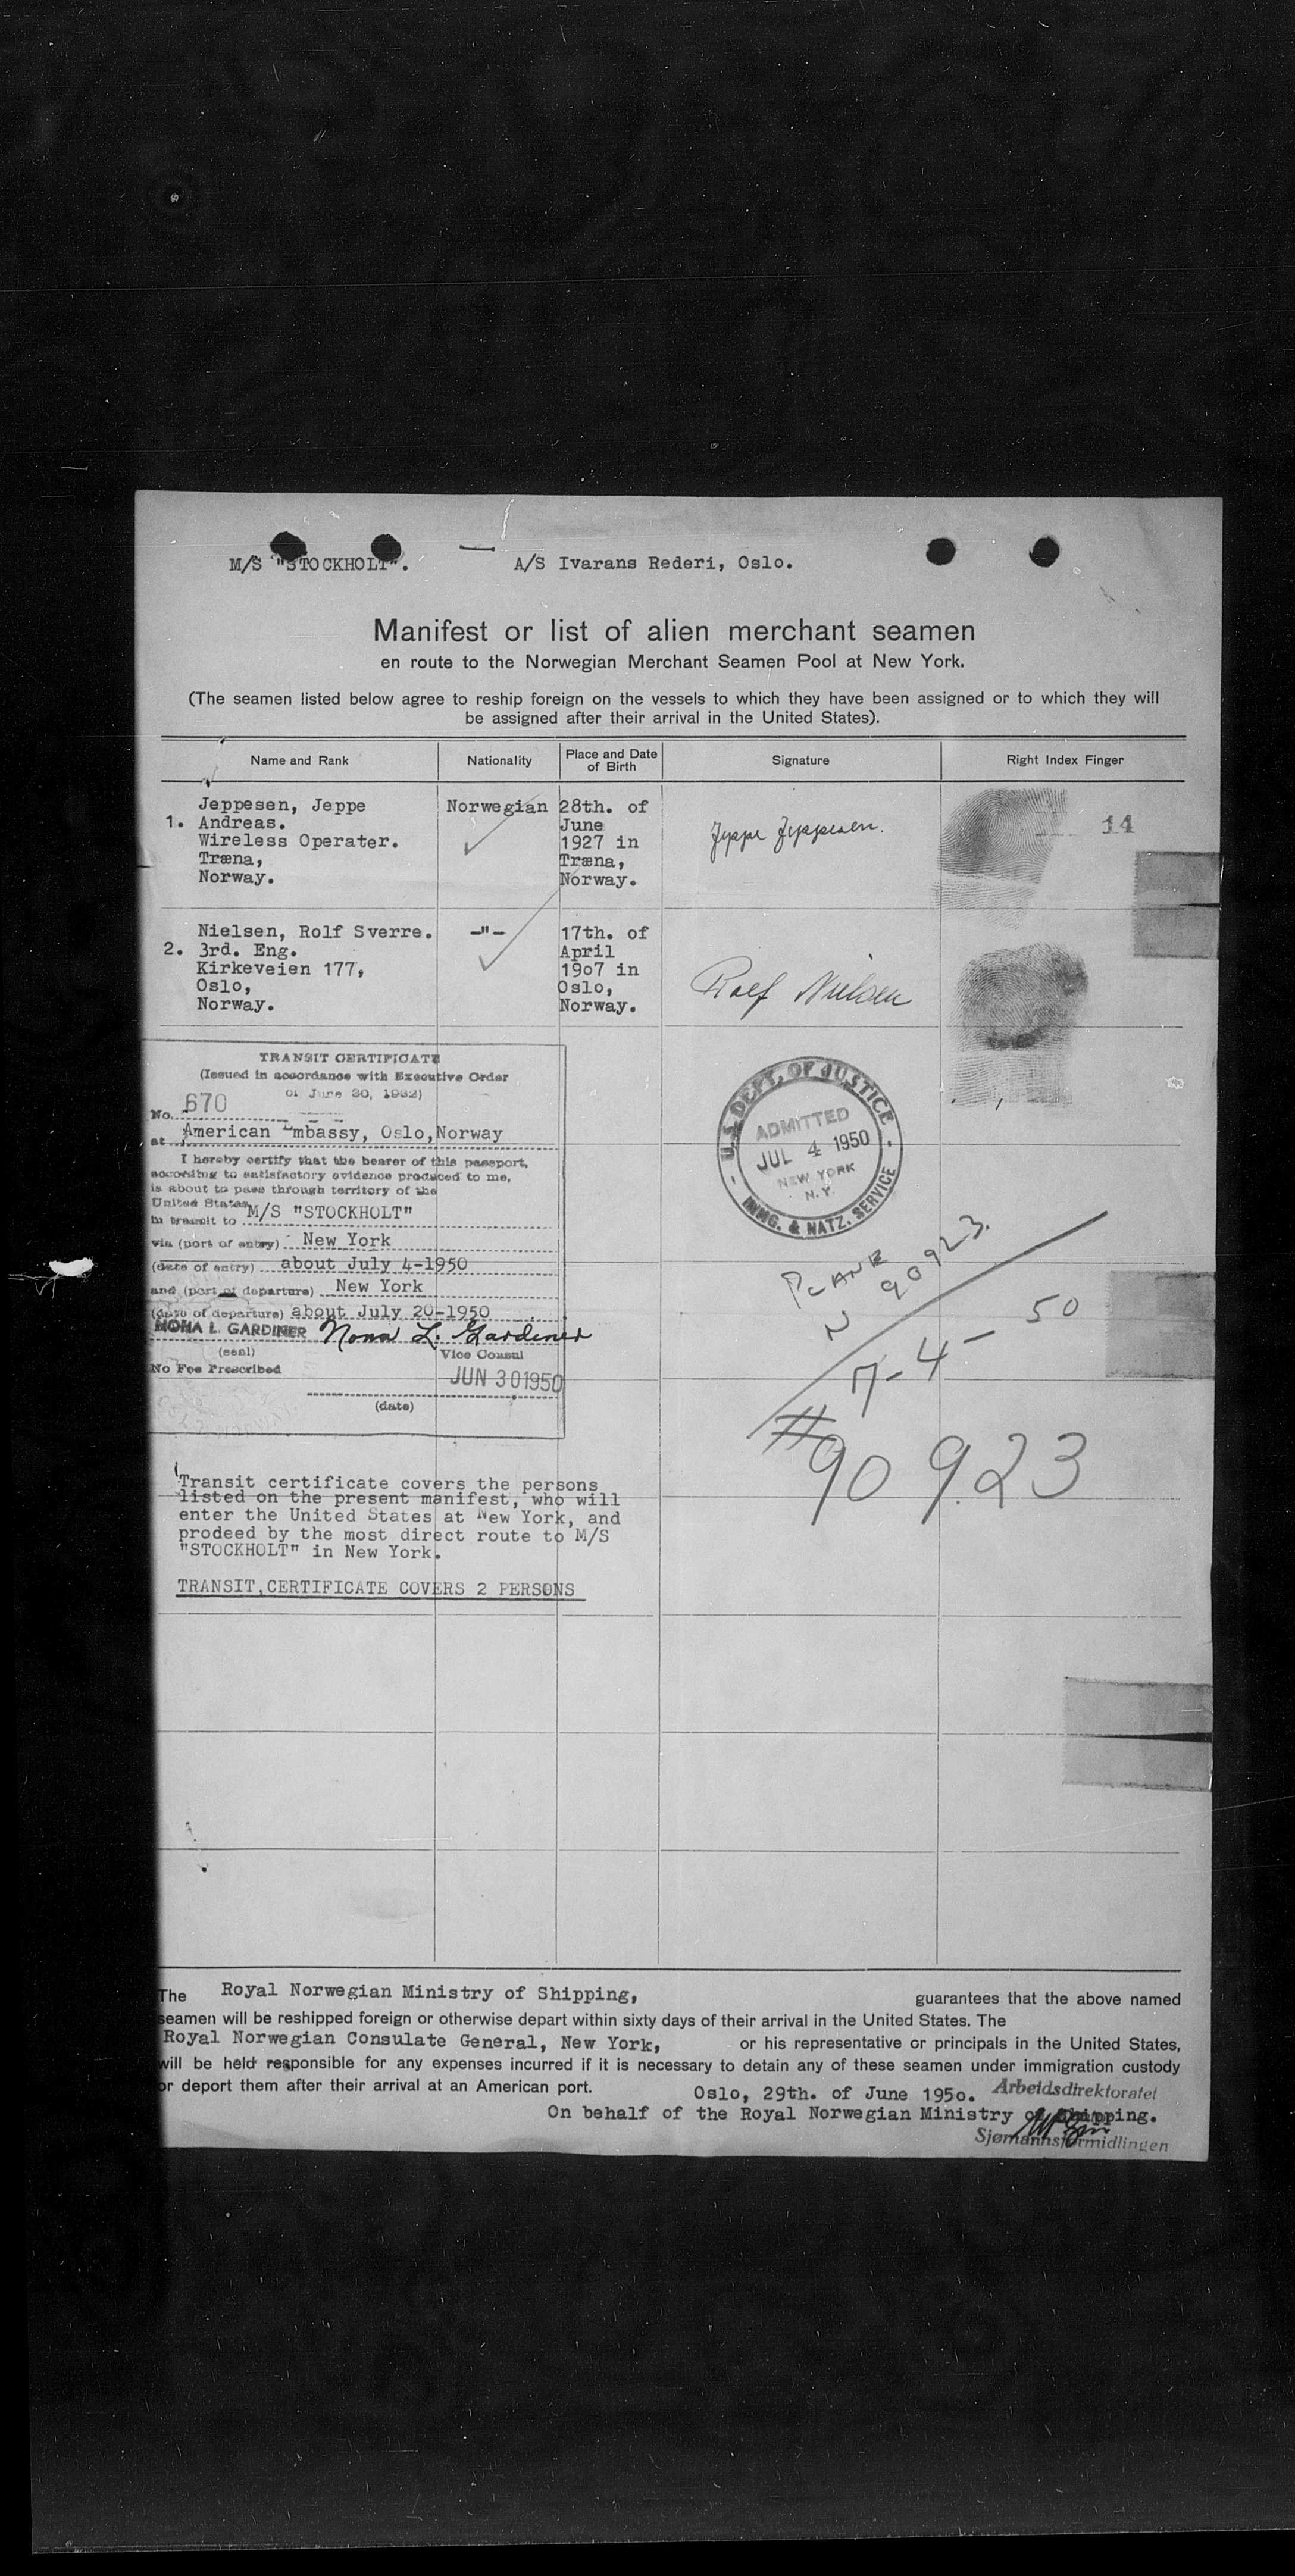 M/S "STOCKHOLT". A/S Ivarans Rederi, Oslo.
Manifest or list of alien merchant seamen
en route to the Norwegian Merchant Seamen Pool at New York.
(The seamen listed below agree to reship foreign on the vessels to which they have been assigned or to which they will
be assigned after their arrival in the United States).
Name and Rank Nationality Place and Date of Birth Signature Right Index Finger
Jeppesen, Jeppe Norwegian 28th. of
1. Andreas. June
Wireless Operater. 1927 in
Træna, Træna,
Norway. Norway.
Jeppe Jeppesen.
14
Nielsen, Rolf Sverre. -"- 17th. of
2. 3rd. Eng. April
Kirkeveien 177, 1907 in
Oslo, Oslo,
Norway. Norway.
Rolf Nielsen
TRANSIT CERTIFICATE
(Issued in accordance with Executive Order
of June 30, 1932)
No. 670
at American Embassy, Oslo, Norway
I hereby certify that the bearer of this passport,
according to satisfactory evidence produced to me,
is about to pass through territory of the
United States
in transit to M/S "STOCKHOLT"
via (port of entry) New York
(date of entry) about July 4-1950
and (port of departure) New York
(date of departure) about July 20-1950
NONA L. GARDINER Nona L. Gardiner
(seal) Vice Consul
No Fee Prescribed
JUN 30 1950
(date)
U.S. DEPT. OF JUSTICE
ADMITTED
JUL 4 1950
NEW YORK
N.Y.
IMMG. & NATZ. SERVICE
PLANE
N 90923.
7-4-50
#90923
Transit certificate covers the persons
listed on the present manifest, who will
enter the United States at New York, and
prodeed by the most direct route to M/S
"STOCKHOLT" in New York.
TRANSIT,CERTIFICATE COVERS 2 PERSONS
The Royal Norwegian Ministry of Shipping, guarantees that the above named
seamen will be reshipped foreign or otherwise depart within sixty days of their arrival in the United States. The
Royal Norwegian Consulate General, New York, or his representative or principals in the United States,
will be held responsible for any expenses incurred if it is necessary to detain any of these seamen under immigration custody
or deport them after their arrival at an American port.
Oslo, 29th. of June 195o. Arbeidsdirektoratet
On behalf of the Royal Norwegian Ministry of Shipping.
Sjømannsformidlingen